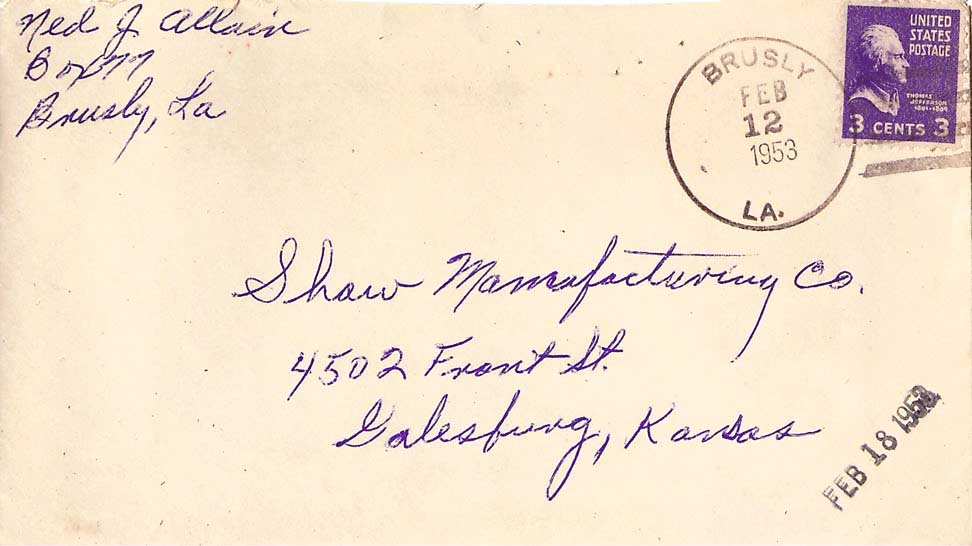 Ned J. Allain
Box 77
Brusly, La
BRUSLY
FEB
12
1953
LA.
UNITED
STATES
POSTAGE
THOMAS
JEFFERSON
1801-1809
3 CENTS 3
Shaw Manufacturing Co.
4502 Front St.
Galesburg, Kansas
FEB 18 1953